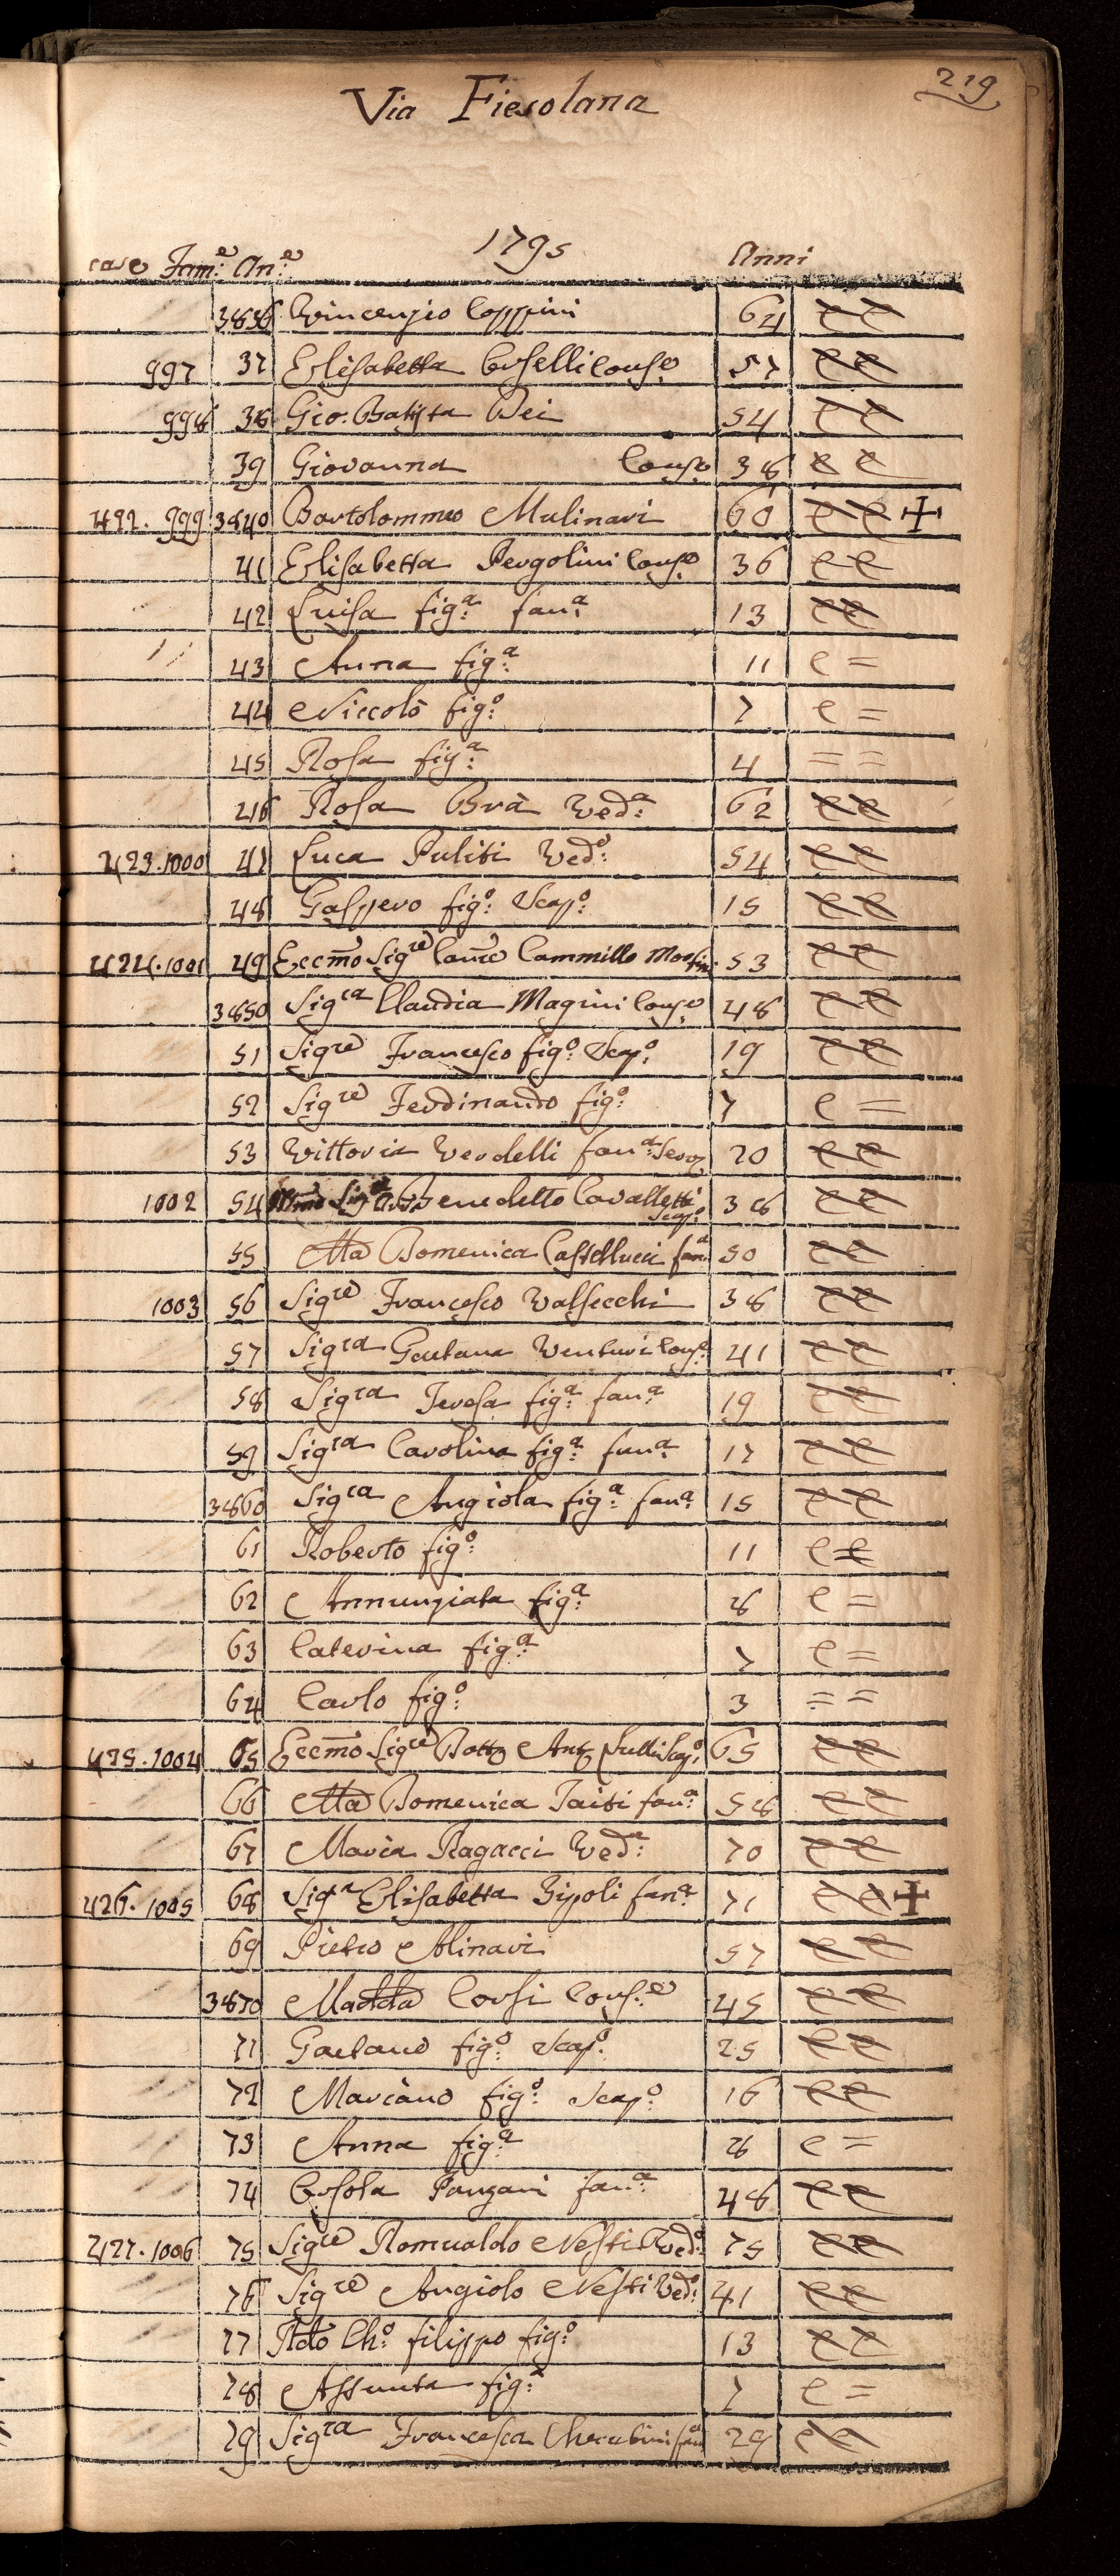 219
Via Fiesolana
1795
case Fam:e An:e Anni
3836 Vincenzio Coppini 64 e e
997 37 Elisabetta Conse 57 e e
998 38 Gio. Batista Dei 54 e e
39 Giovanna Conse 38 e e
422. 999 3840 Bartolommeo Mulinari 60 e e +
41 Elisabetta Pergolini Conse 36 e e
42 Luisa fig:a fan:a 13 e e
43 Anna fig:a 11 e =
44 Niccolò fig:o 7 e =
45 Rosa fig:a 4 = =
46 Rosa Brà Ved:a 62 e e
423. 1000 47 Luca Puliti Ved:o 54 e e
48 Gaspero fig:o Scap:o 15 e e
424. 1001 49 Eccmo Sigre Cammillo 53 e e
3850 Sigra Claudia Magini Conse 48 e e
51 Sigre Francesco fig:o Scap:o 19 e e
52 Sigre Ferdinando fig:o 7 e =
53 Vittoria Verdelli fan:a Serv 20 e e
1002 54 Benedetto Cavalletti Scap:o 38 e e
55 Ma Domenica Castellucci fan:a 50 e e
1003 56 Sigre Francesco Valsecchi 38 e e
57 Sigra Gaetana Venturi Cons:e 41 e e
58 Sigra Teresa fig:a fan:a 19 e e
59 Sigra Carolina fig:a fan:a 17 e e
3860 Sigra Angiola fig:a fan:a 15 e e
61 Roberto fig:o 11 e e
62 Annunziata fig:a 8 e =
63 Caterina fig:a 7 e =
64 Carlo fig:o 3 = =
425. 1004 65 Eccmo Sigre Ant Scap:o 65 e e
66 Ma Domenica Taiti fan:a 58 e e
67 Maria Ragacci Ved:a 70 e e
426. 1005 68 Siga Elisabetta Zipoli fan:a 71 e e +
69 Pietro Alinari 57 e e
3870 Madda Corsi Cons:e 45 e e
71 Gaetano fig:o Scap:o 25 e e
72 Mariano fig:o Scap:o 16 e e
73 Anna fig:a 8 e =
74 Orsola Panzani fan:a 48 e e
427. 1006 75 Sigre Romualdo Nesti Ved:o 75 e e
76 Sigre Angiolo Nesti Ved:o 41 e e
77 Ch:o filippo fig:o 13 e e
78 Assunta fig:a 7 e =
79 Sigra Francesca Cherubini fan 29 e e